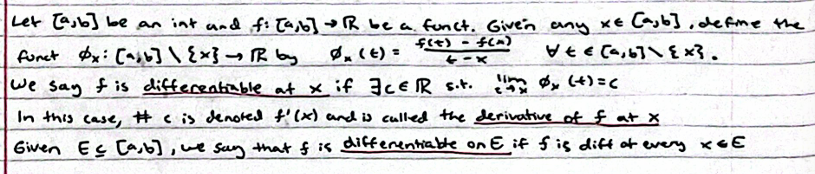 Let [a,b] be an int and f: [a,b] → ℝ be a funct. Given any x ∈ [a,b], define the
funct ϕₓ: [a,b] \ {x} → ℝ by ϕₓ(t) = (f(t) - f(x))/(t - x) ∀ t ∈ [a,b] \ {x}.
We say f is differentiable at x if ∃ c ∈ ℝ s.t. lim t→x ϕₓ(t) = c
In this case, # c is denoted f'(x) and is called the derivative of f at x
Given E ⊆ [a,b], we say that f is differentiable on E if f is diff at every x ∈ E